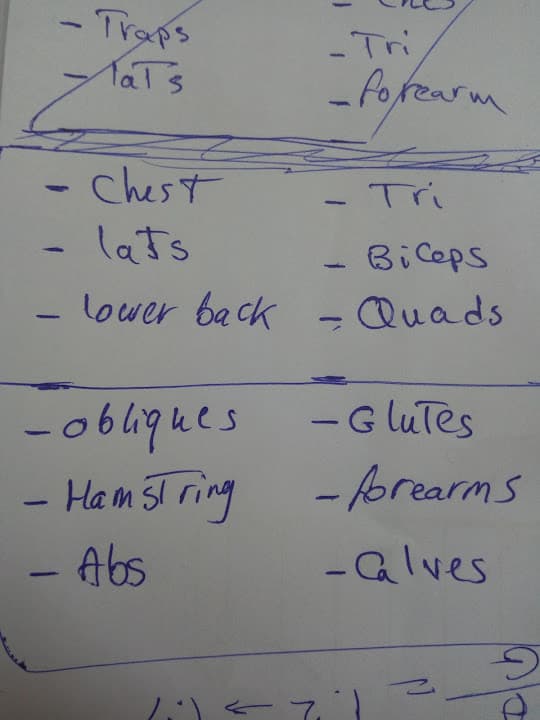 - Traps
- Tri
- laTs
- forearm
- Chest
- Tri
- laTs
- Biceps
- lower back
- Quads
- obliques
- GluTes
- HamsTring
- forearms
- Abs
- Calves